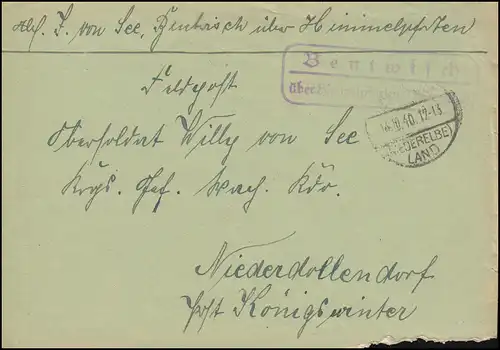 Abs. J. von See, Bentwisch über Himmelpforten
Bentwisch
über
Feldpost
16. 40. 12-13
(NIEDERELBE)
LAND
Obersoldat Willy von See
Krgs. Gef. Wach. Kdo.
Niederdollendorf
Post Königswinter